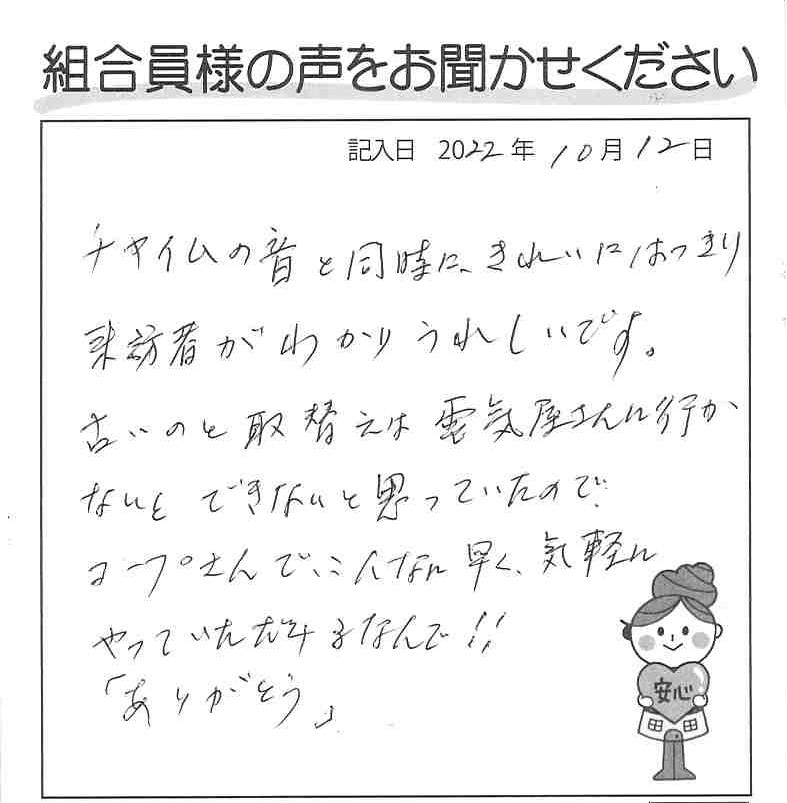 組合員様の声をお聞かせください
記入日 2022年10月12日
チャイムの音と同時に、きれいにはっきり
来訪者がわかりうれしいです。
古いのと取替えは電気屋さんに行か
ないとできないと思っていたので
コープさんで、こんなに早く、気軽に
やっていただけるなんて!!
「ありがとう」
安心